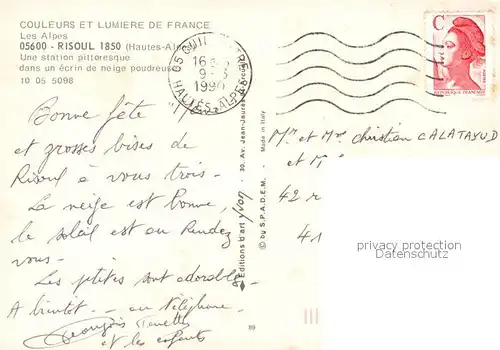 COULEURS ET LUMIERE DE FRANCE
Les Alpes
05600 - RISOUL 1850 (Hautes-Alpes)
Une station pittoresque
dans un écrin de neige poudreuse
10 05 5098
05 GUIL
16
9-3
1990
HAUTES-ALPES
C
REPUBLIQUE FRANÇAISE
Bonne fête
et grosses bises de
Risoul à vous trois.
La neige est bonne,
le soleil est au Rendez
vous.
Les petites sont adorables
A bientôt - au téléphone
François
et les enfants
Mr et Mme Christian CALATAYUD
et M
42 r
41
Editions d'art yvon 30, Av. Jean-Jaurès
© by S.P.A.D.E.M. Made in Italy
89
privacy protection
Datenschutz